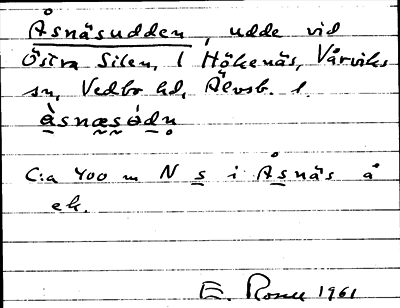 Åsnäsudden, udde vid
Östra Silen, l Hökenäs, Vårviks
sn, Vedbo hd, Älvsb. l.
àsnæsó̀dn̥
C:a 400 m N s i Åsnäs å
ek.
E. 1961